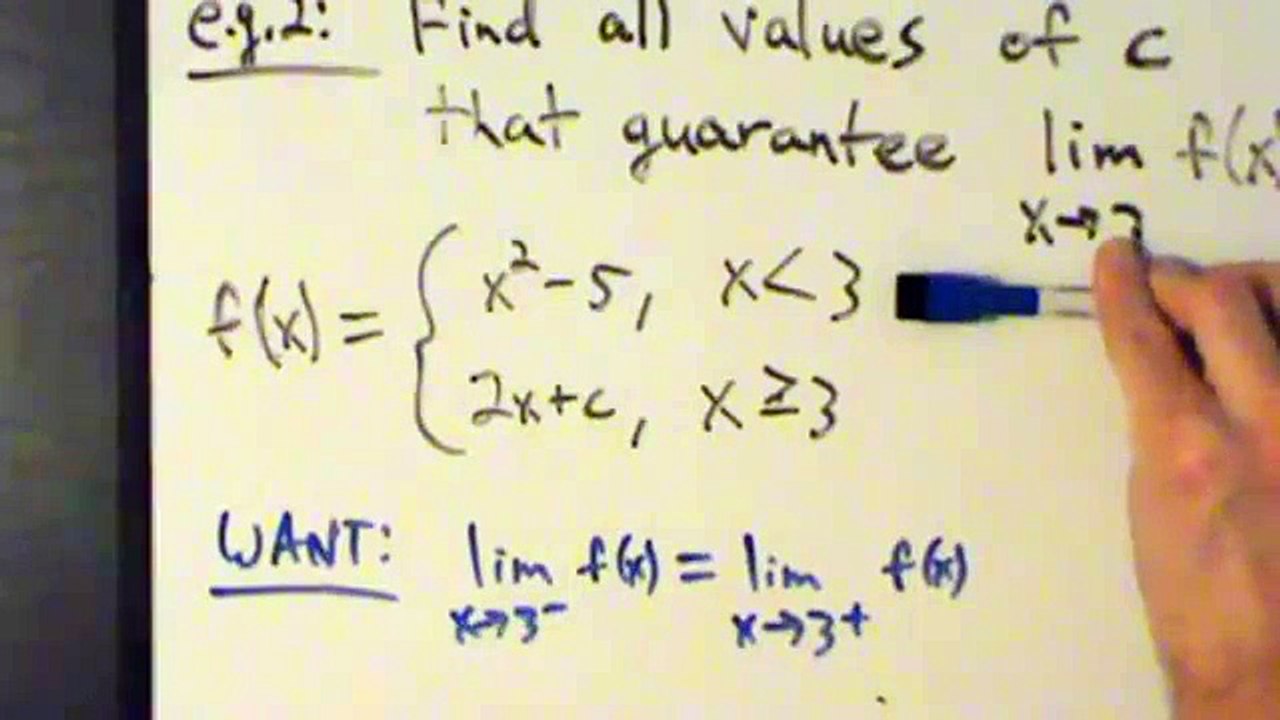 e.g.2: Find all values of c
that guarantee lim f(x)
x→3
f(x) = { x²-5, x<3
2x+c, x≥3
WANT: lim f(x) = lim f(x)
x→3⁻ x→3⁺